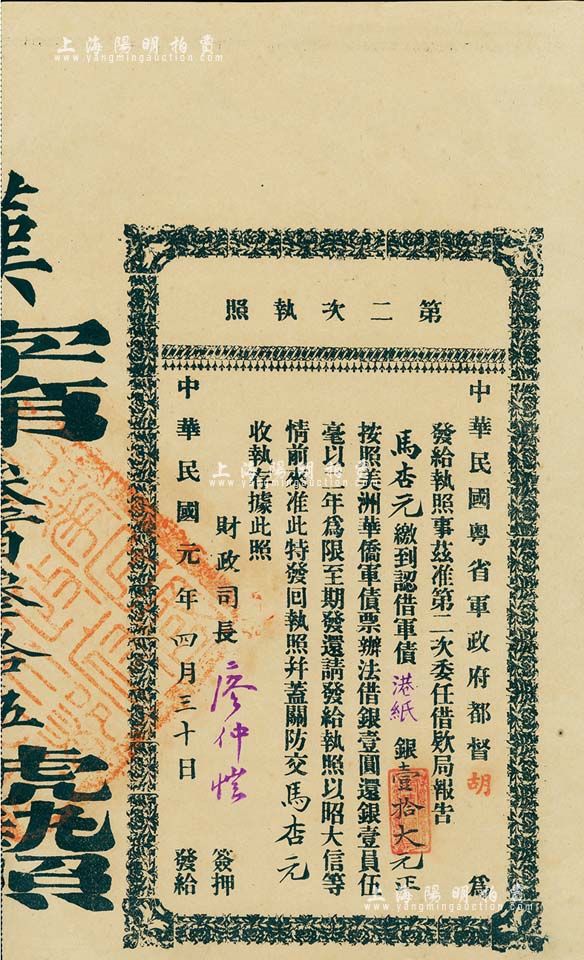 上海陽明拍賣
www.yangmingauction.com
第二次執照
中華民國粵省軍政府都督胡 爲
發給執照事茲准第二次委任借欵局報告
馬杏元繳到認借軍債港紙銀壹拾大元正
按照美洲華僑軍債票辦法借銀壹圓還銀壹員伍
毫以 年爲限至期發還請發給執照以昭大信等
情前 准此特發回執照幷蓋關防交馬杏元
收執 據此照
財政司長廖仲愷 簽押
中華民國元年四月三十日 發給
字第 百 拾五號執照
上海陽明拍賣
www.yangmingauction.com
上海陽明拍賣
www.yangmingauction.com